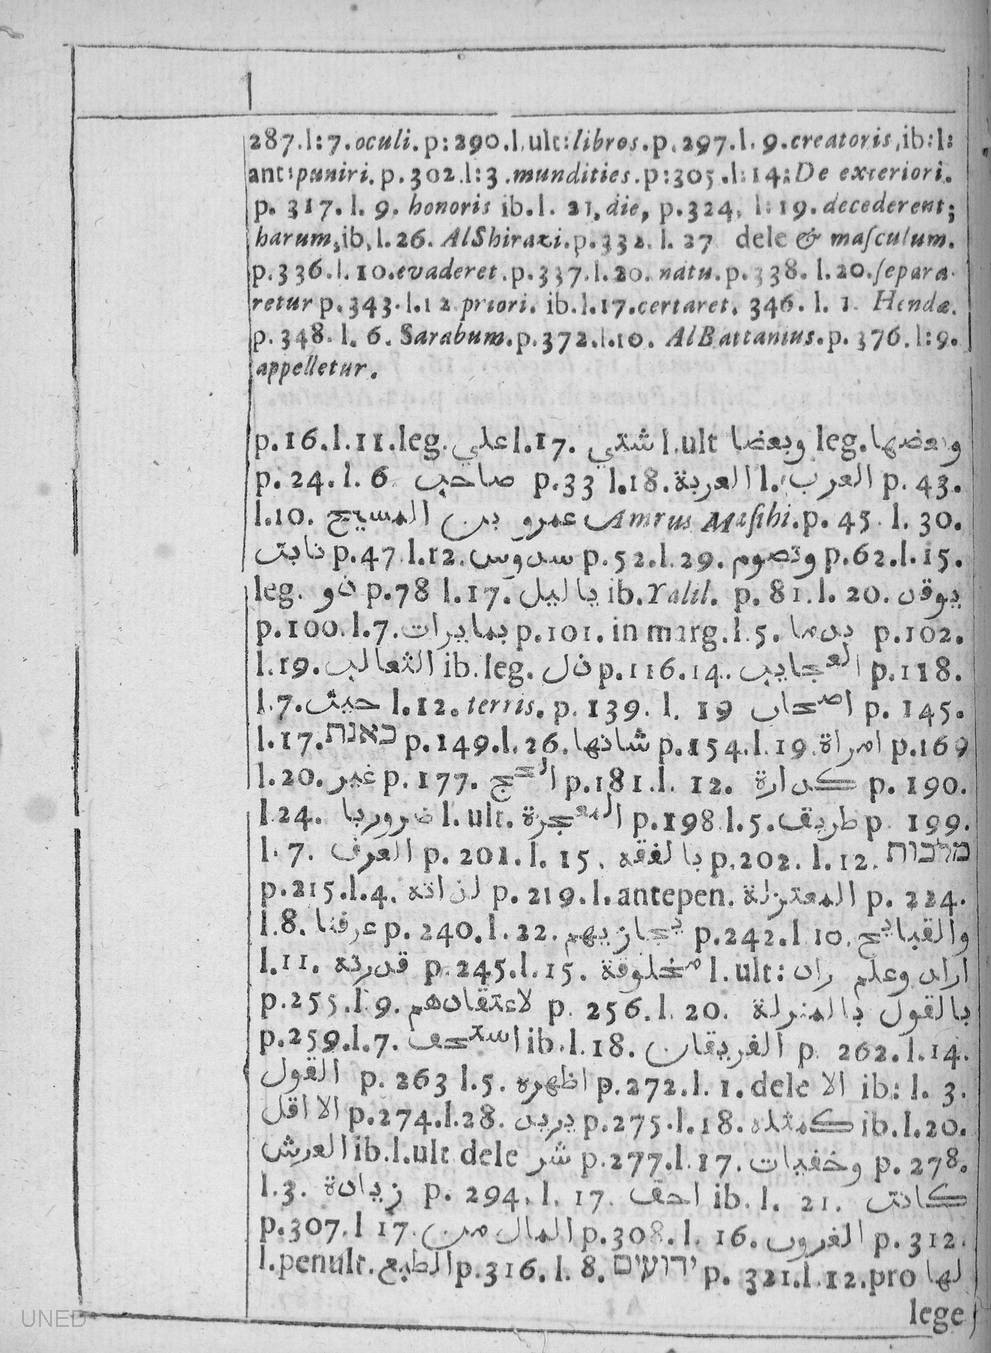 287.l:7.oculi.p:290.l.ult:libros.p.297.l.9.creatoris,ib:l:
ant:puniri.p.302.l:3.mundities.p:305.l:14:De exteriori.
p. 317. l. 9. honoris ib.l. 21,die, p.324, l:19.decederent;
harum,ib,l.26. AlShirazi.p.332. l. 27 dele & maſculum.
p.336.l.10.evaderet.p.337.l.20. natu.p.338. l.20.ſepara-
retur p.343.l.12 priori. ib.l.17.certaret. 346. l. 1. Hendæ.
p.348. l. 6. Sarabum.p.372.l.10. AlBattanius.p.376.l:9.
appelletur.
p.16.l.11.leg. علي l.17. شتي l.ult وبعضا leg. وبعضها
p. 24. l. 6. صاحب p.33 l.18. العربة l. العرب p. 43.
l.10. عمرو بن المسيح Amrus Maſihi.p. 45. l. 30.
نابت p.47.l.12. سدوس p.52.l.29. وتصوم p.62.l.15.
leg. ذو p.78 l.17. ياليل ib.Yalil. p. 81.l. 20. يوقن
p.100.l.7. p.101. in marg.l.5. p.102.
l.19. الثعالب ib.leg. p.116.14. العجايب p.118.
l.7. حيث l.12. terris. p. 139. l. 19 اصحاب p. 145.
l.17. כאנת p.149.l.26. شانها p.154.l.19. امراة p.169
l.20. غير p. 177. الحج p.181.l. 12. p. 190.
l.24. ضروريا l. ult. p.198.l.5. طريف p. 199.
l. 7. العرف p. 201.l. 15. بالفقه p.202. l.12. מלכות
p.215.l.4. لذاته p. 219.l.antepen. المعتزلة p. 224.
l.8. عرفنا p. 240.l. 22. يجازيهم p.242.l 10. والقبايح
l.11. قدرته p.245.l.15. مخلوقة l. ult: اراد وعلم
p.255.l.9. لاعتقادهم p. 256.l. 20. بالقول بالمنزلة
p.259.l.7. ib.l.18. الفريقان p. 262.l.14.
القول p. 263 l.5. اظهره p.272.l. 1.dele الا ib: l. 3.
الا اقل p.274.l.28. p.275.l.18. كمثله ib.l.20.
العرش ib.l.ult dele شر p.277.l.17. وخفيات p. 278.
l.3. زيادة p. 294. l. 17. احق ib. l. 21. كانت
p.307.l 17. المال من p.308.l. 16. p. 312.
l.penult. الطبع p.316. l. 8. ידועים p. 321.l.12.pro لها
lege
UNED